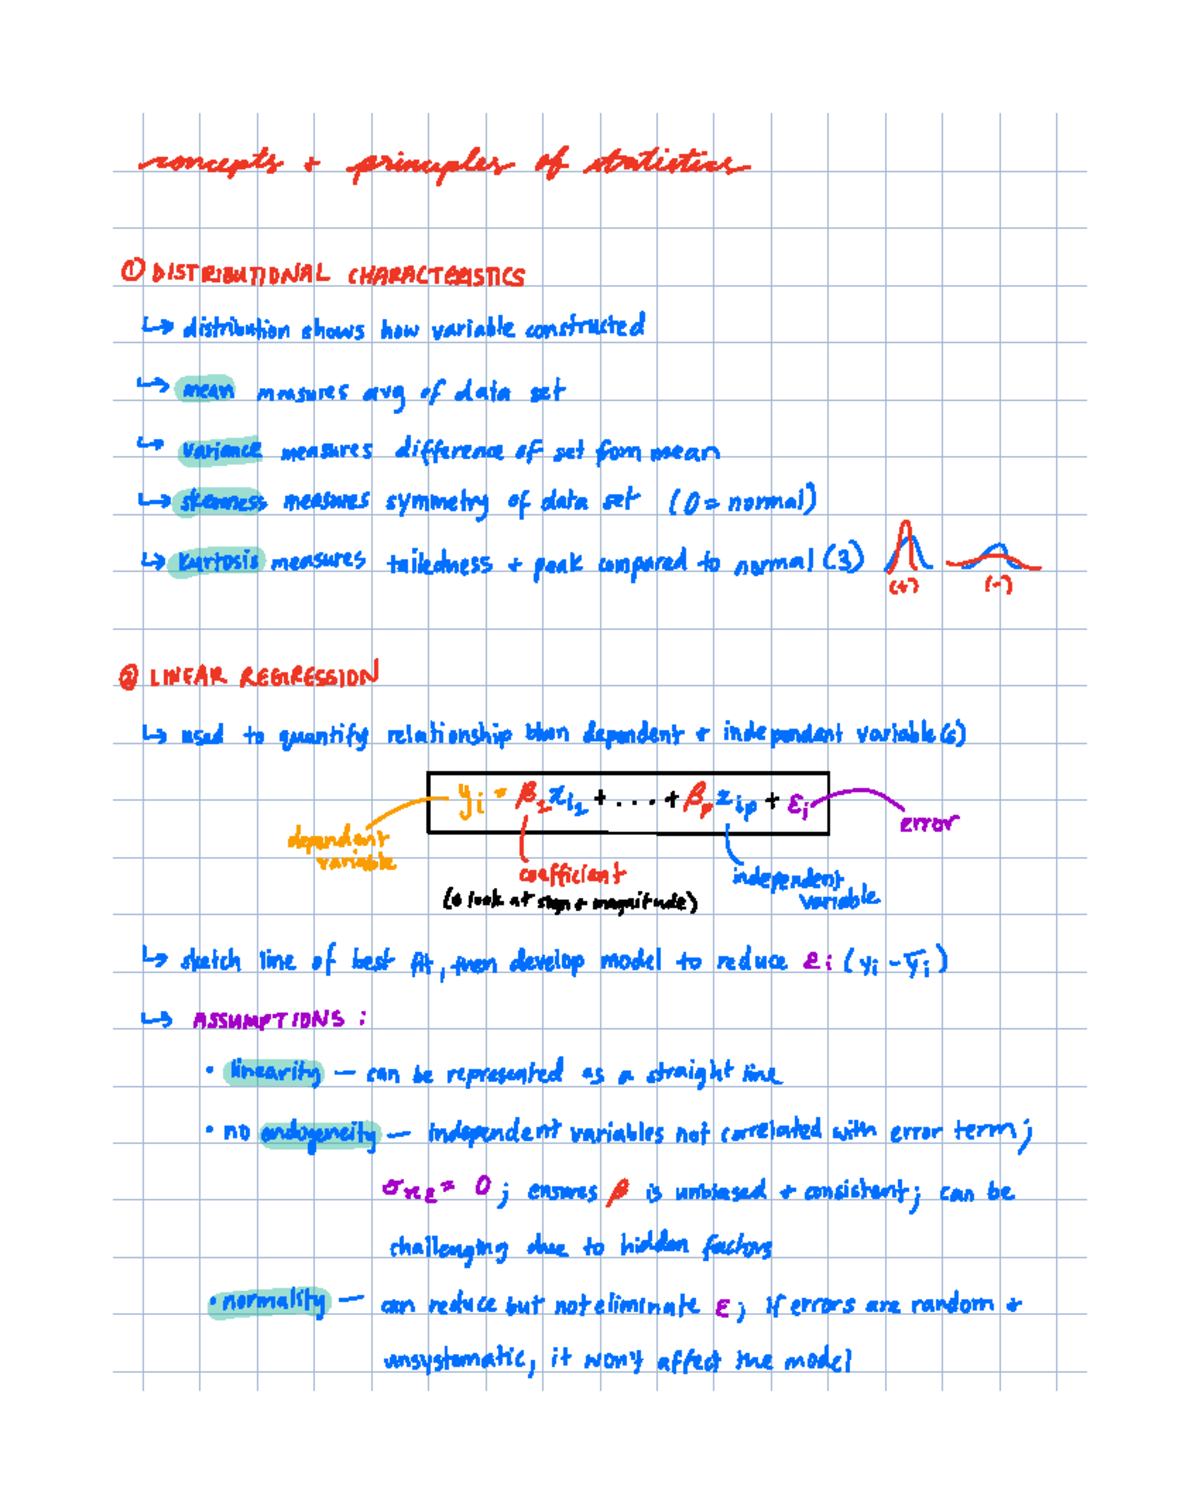 concepts + principles of statistics
① DISTRIBUTIONAL CHARACTERISTICS
↳ distribution shows how variable constructed
↳ mean measures avg of data set
↳ variance measures difference of set from mean
↳ skewness measures symmetry of data set (0 = normal)
↳ kurtosis measures tailedness + peak compared to normal (3)
(+) (-)
② LINEAR REGRESSION
↳ used to quantify relationship btwn dependent + independent variable(s)
yi = β1xi1 + .... + βpxip + εi
error
dependent
variable
coefficient
independent
variable
(↳ look at sign + magnitude)
↳ sketch line of best fit, then develop model to reduce εi (yi - ȳi)
↳ ASSUMPTIONS:
• linearity — can be represented as a straight line
• no endogeneity — independent variables not correlated with error term;
σxε = 0; ensures β is unbiased + consistent; can be
challenging due to hidden factors
• normality — can reduce but not eliminate ε; if errors are random +
unsystematic, it won't affect the model